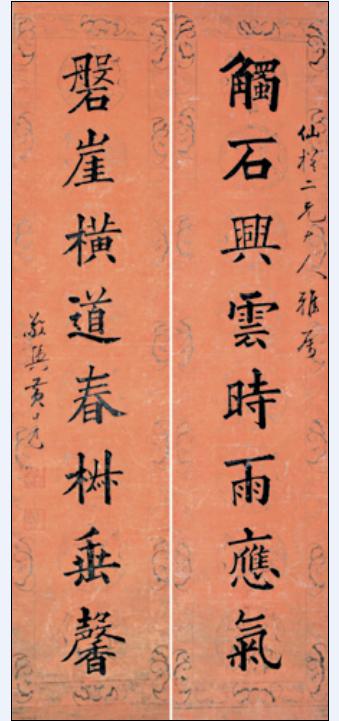 仙槎二兄大人雅屬
觸石興雲時雨應氣
磐崖橫道春垂馨
敬輿黃自元